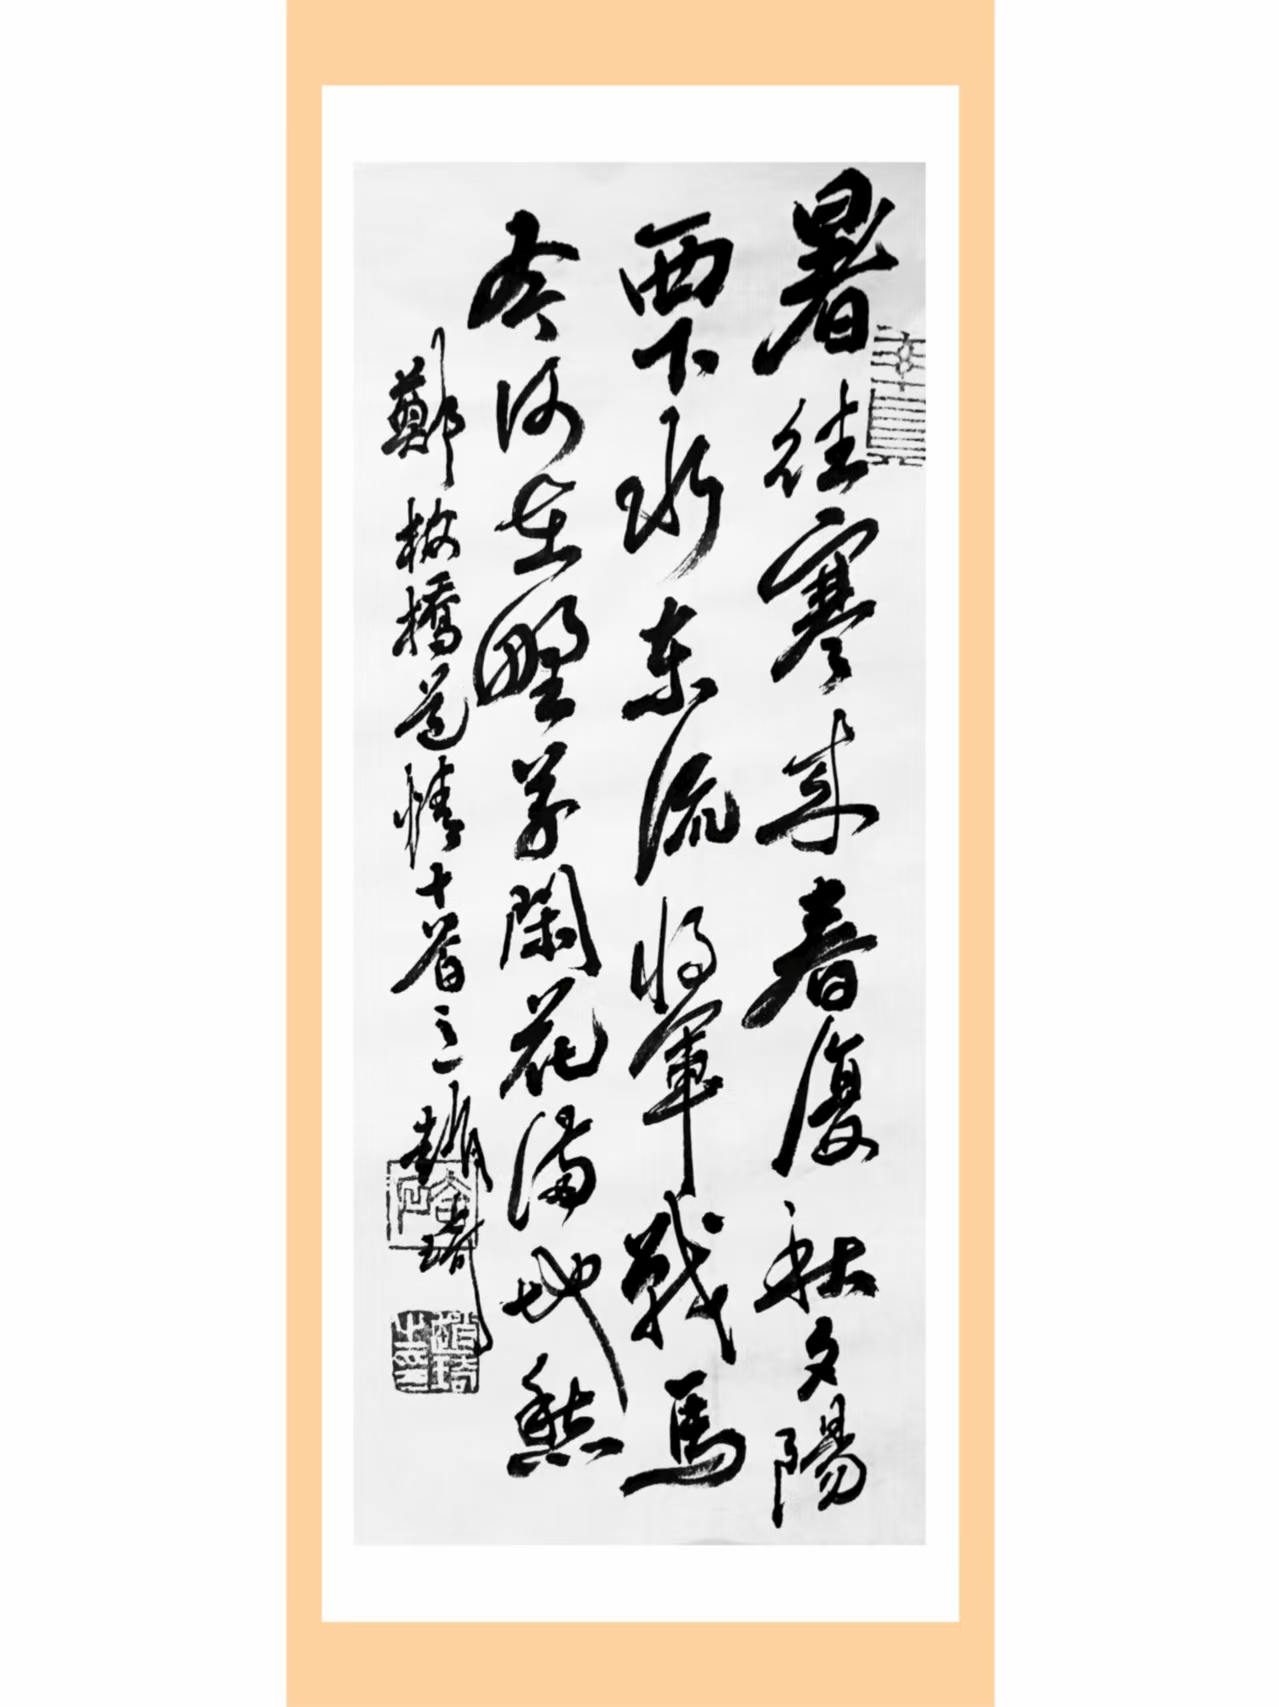 暑往寒来春復秋夕陽
西下水東流将軍戰馬
今何在野草閑花满地愁
鄭板橋道情十首之趙琦
趙琦之印